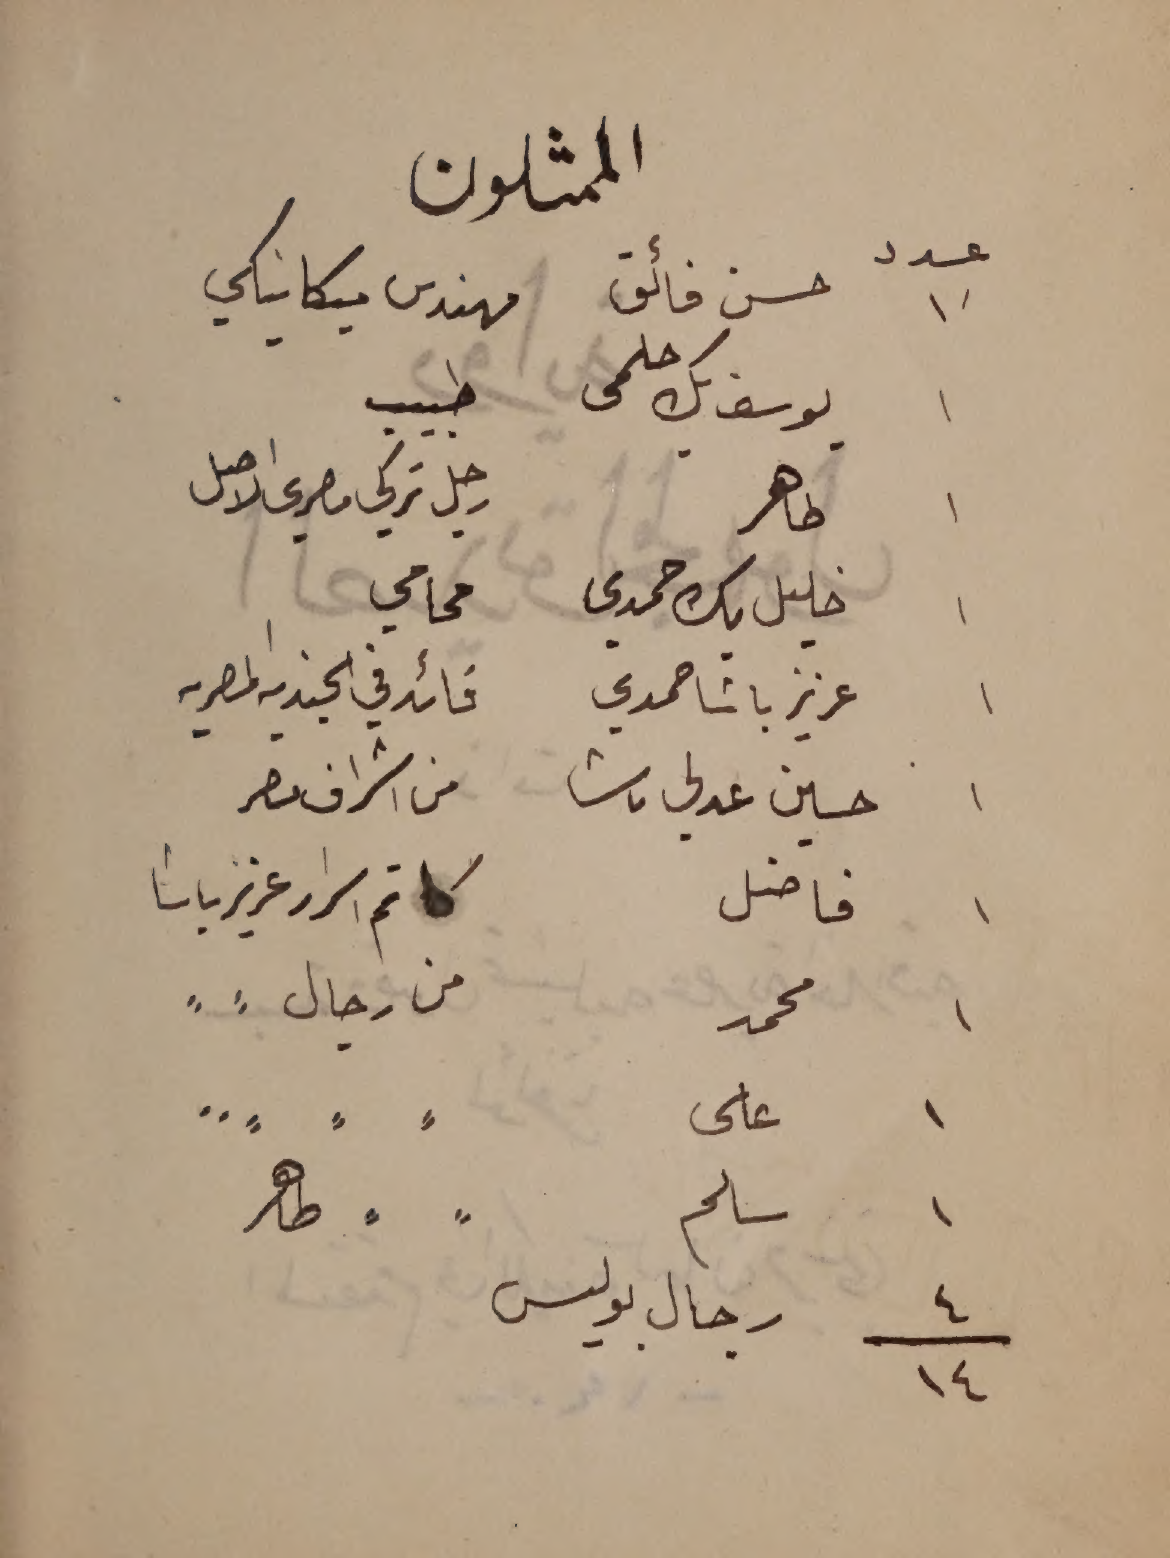 الممثلون
عدد
١ حسن فائق مهندس ميكانيكي
١ يوسف بك حلمى طبيب
١ طاهر رجل تركي مصرى الاصل
١ خليل بك حمدي محامي
١ عزيز باشا حمدي قائد في الجنديه المصريه
١ حسين عدلي باشا من اشراف مصر
١ فاضل كاتم اسرار عزيز باشا
١ محمد من رجال " "
١ على " " " ..
١ سالم " " طاهر
٤ رجال بوليس
١٤